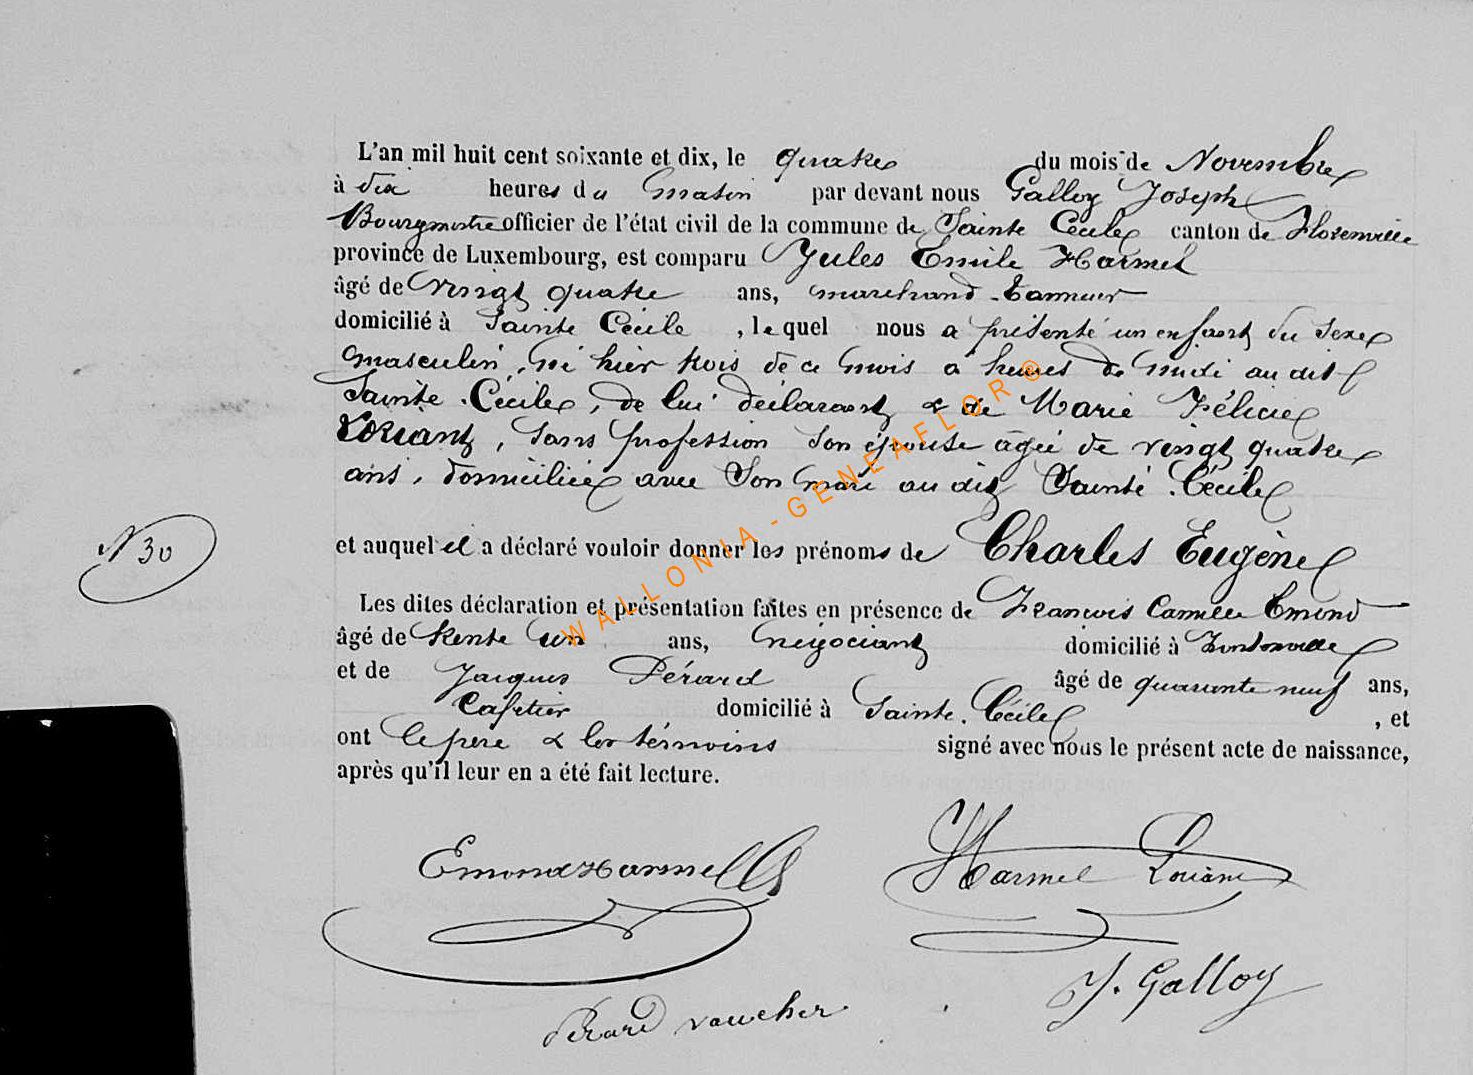 L'an mil huit cent soixante et dix, le quatre du mois de Novembre
à dix heures du matin par devant nous Galloy Joseph
Bourgmestre officier de l'état civil de la commune de Sainte Cécile canton de Florenville
province de Luxembourg, est comparu Jules Emile Harmel
âgé de vingt quatre ans, marchand tanneur
domicilié à Sainte Cécile , lequel nous a présenté un enfant du sexe
masculin, né hier trois de ce mois à heures de midi au dit
Sainte Cécile, de lui déclarant & de Marie Félicie
Loriant, sans profession son épouse âgée de vingt quatre
ans, domiciliée avec son mari au dit Sainte Cécile
N 30
et auquel il a déclaré vouloir donner les prénoms de Charles Eugène
Les dites déclaration et présentation faites en présence de François Camille Emond
âgé de trente un ans, négociant domicilié à
et de Jacques Pérard âgé de quarante neuf ans,
Cafetier domicilié à Sainte Cécile , et
ont le père & les témoins signé avec nous le présent acte de naissance,
après qu'il leur en a été fait lecture.
Emond Harmel Harmel Loriant
J. Galloy
Pérard vaucher
WALLONIA-GENEAFLOR®